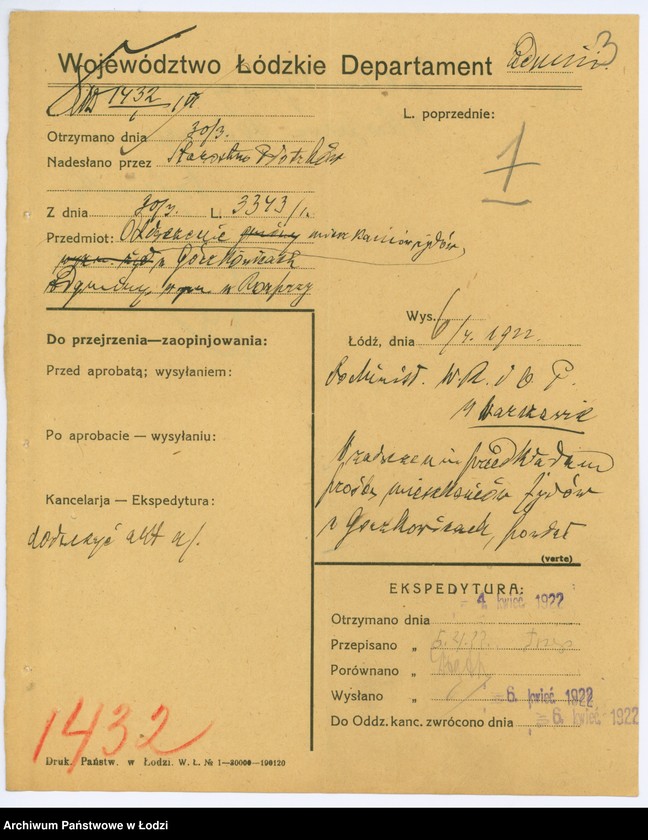 3
Województwo Łódzkie Departament Admin.
1432
L. poprzednie:
1
Otrzymano dnia 30/3.
Nadesłano przez Starostwo Piotrków
Z dnia 30/3. L. 3343/
Przedmiot: Odłączenie gminy mieszkańców żydów,
w Gorzkowicach
w Rozprzy
Wys.
Łódź, dnia 6/4. 1922.
Do przejrzenia—zaopinjowania:
Przed aprobatą; wysyłaniem:
Po aprobacie — wysyłaniu:
Kancelarja — Ekspedytura:
dołączyć akt
Do Minist. W. R. i O. P.
w Warszawie
W załączeniu przedkładam
prośbę mieszkańców żydów
w Gorzkowicach,
(verte)
EKSPEDYTURA:
Otrzymano dnia 4. kwieć 1922
Przepisano „ 5.4.22.
Porównano „
Wysłano „ 6. kwieć 1922
Do Oddz. kanc. zwrócono dnia 6. kwieć 1922
1432
Druk. Państw. w Łodzi. W. Ł. № 1—30000—190120
Archiwum Państwowe w Łodzi